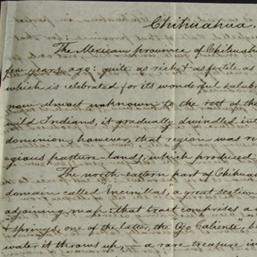 Chihuahua.
The Mexican province of Chihuah
few years ago: quite as rich & as fertile as
which is celebrated for its wonderful salub
now almost unknown to the rest of the
wild Indians, it gradually dwindled int
dominion, however, that region was
pasture-lands, which produced
The north-eastern part of Chihua
domain called Encinillas, a great section
adjoining map: that tract comprises a
& springs, one of the latter, the Ojo Caliente, b
water it throws up, — a rare treasure in